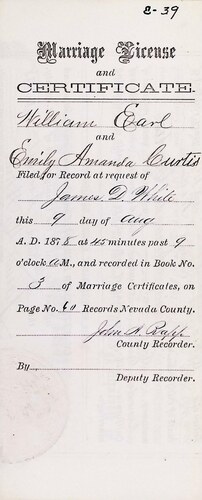 E-39
Marriage License
and
CERTIFICATE.
William Earl
and
Emily Amanda Curtis
Filed for Record at request of
James D. White
this 9 day of Aug
A. D. 1878 at 45 minutes past 9
o'clock A M., and recorded in Book No.
3 of Marriage Certificates, on
Page No. 60 Records Nevada County.
John A. Rapp
County Recorder.
By
Deputy Recorder.